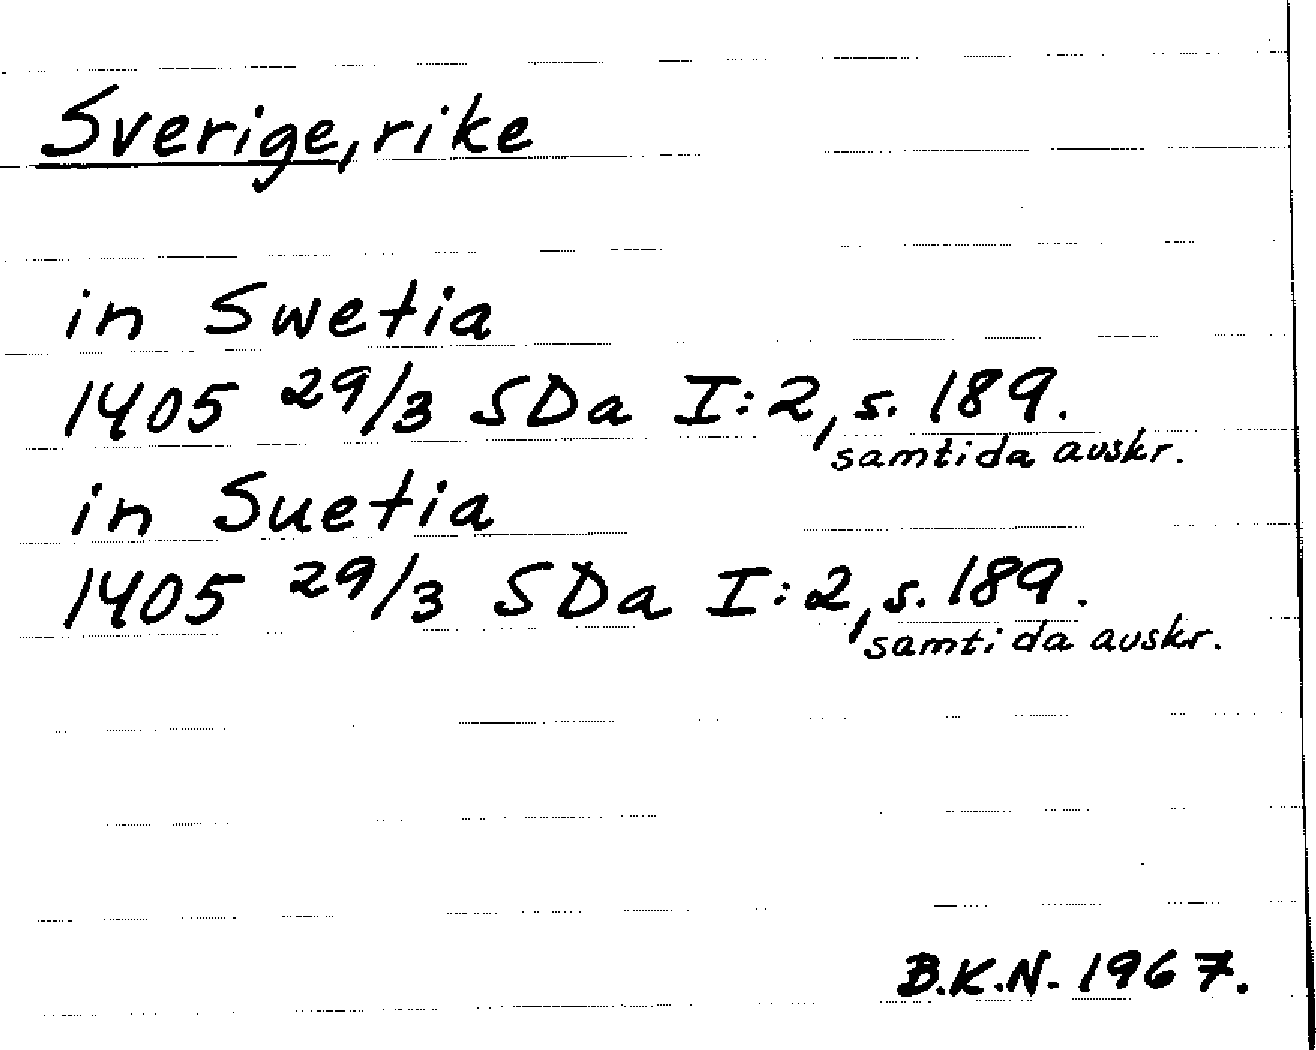 Sverige, rike
in Swetia
1405 29/3 SDa I:2, s. 189.
samtida avskr.
in Suetia
1405 29/3 SDa I:2, s. 189.
samtida avskr.
B.K.N. 1967.